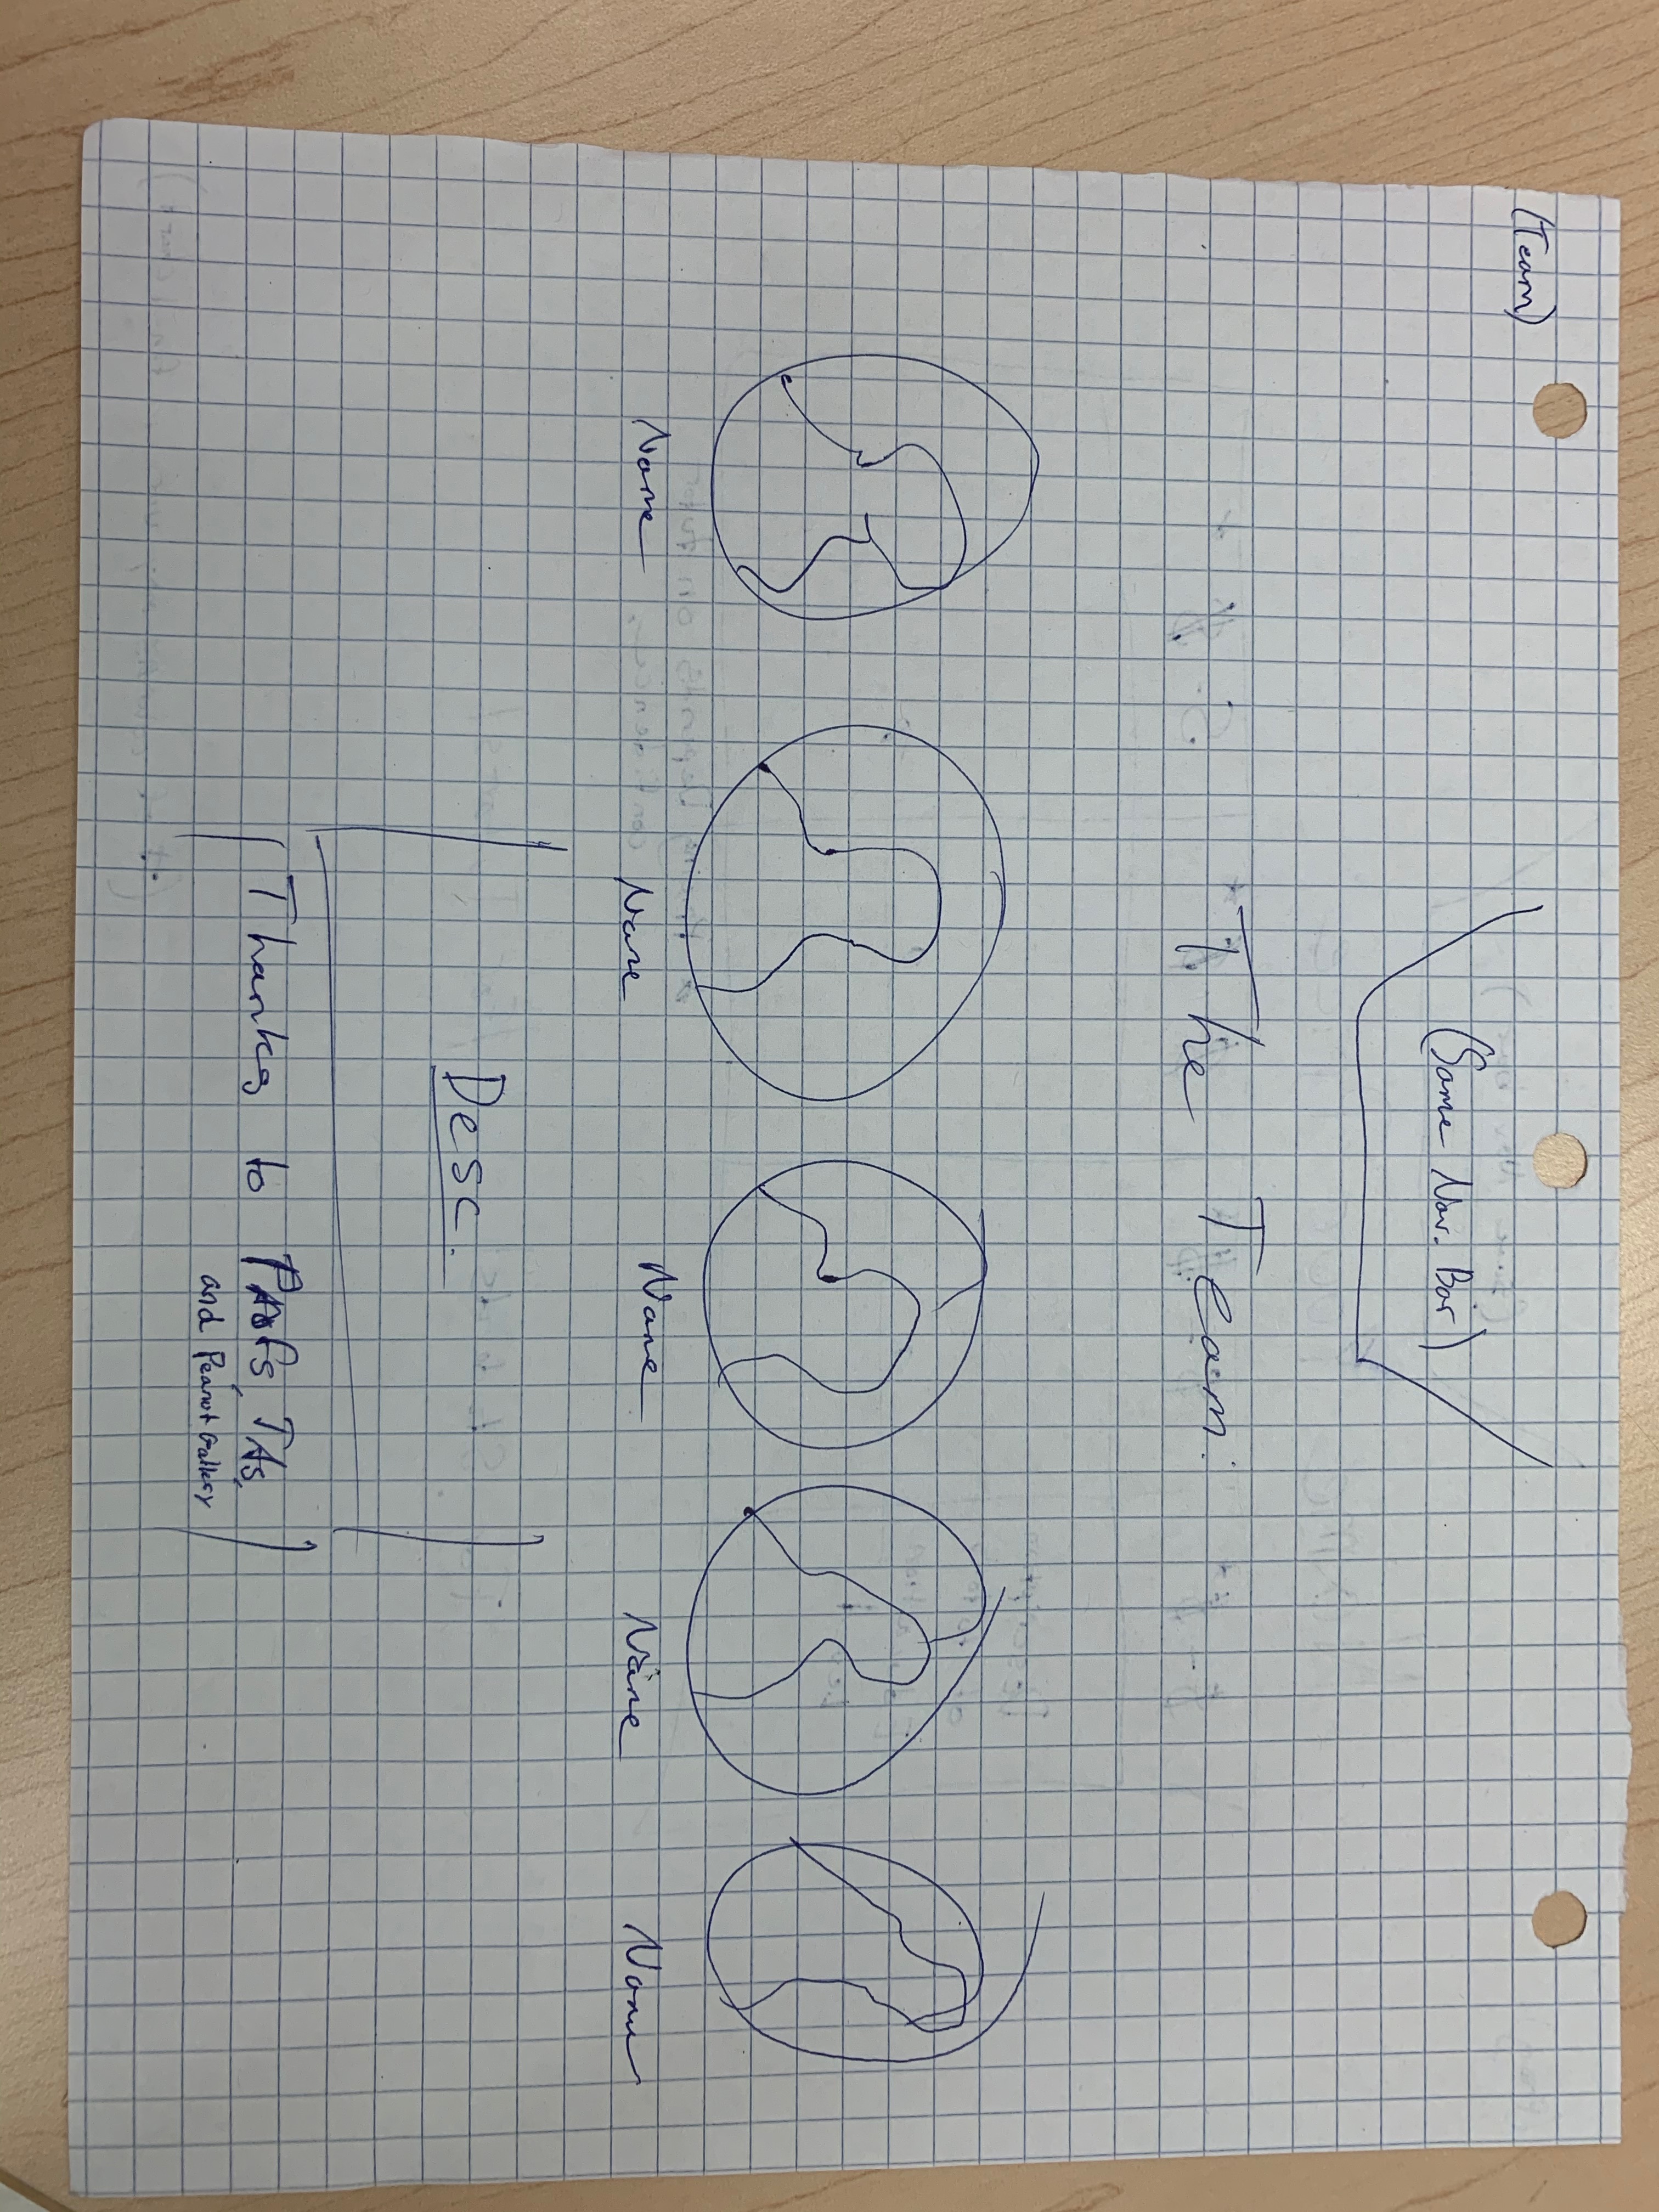 (Team)
(Same Nav. Bar)
The Team.
Name Name Name Name Name
Desc.
Thanks to Profs, TAs,
and Peanut Gallery